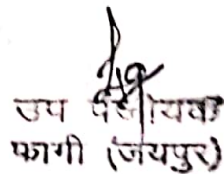 उप पंजीयक
फागी (जयपुर)